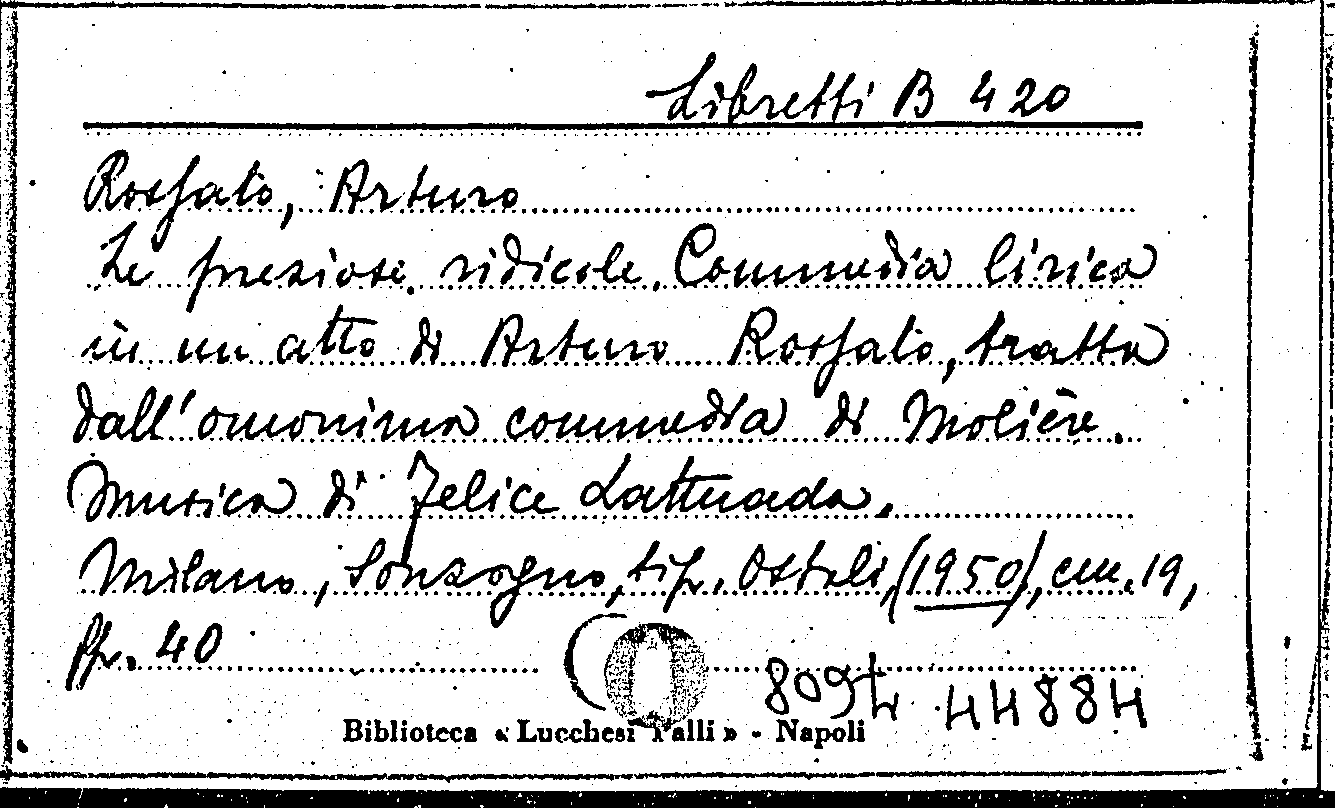 Libretti B 420
Rossato, Arturo
Le preziose ridicole. Commedia lirica
in un atto di Arturo Rossato, tratta
dall'omonima commedia di Molière.
Musica di Felice Lattuada.
Milano, Sonzogno, tip. Ostali, (1950), cm. 19,
pp. 40
8094 44884
Biblioteca « Lucchesi Palli » - Napoli